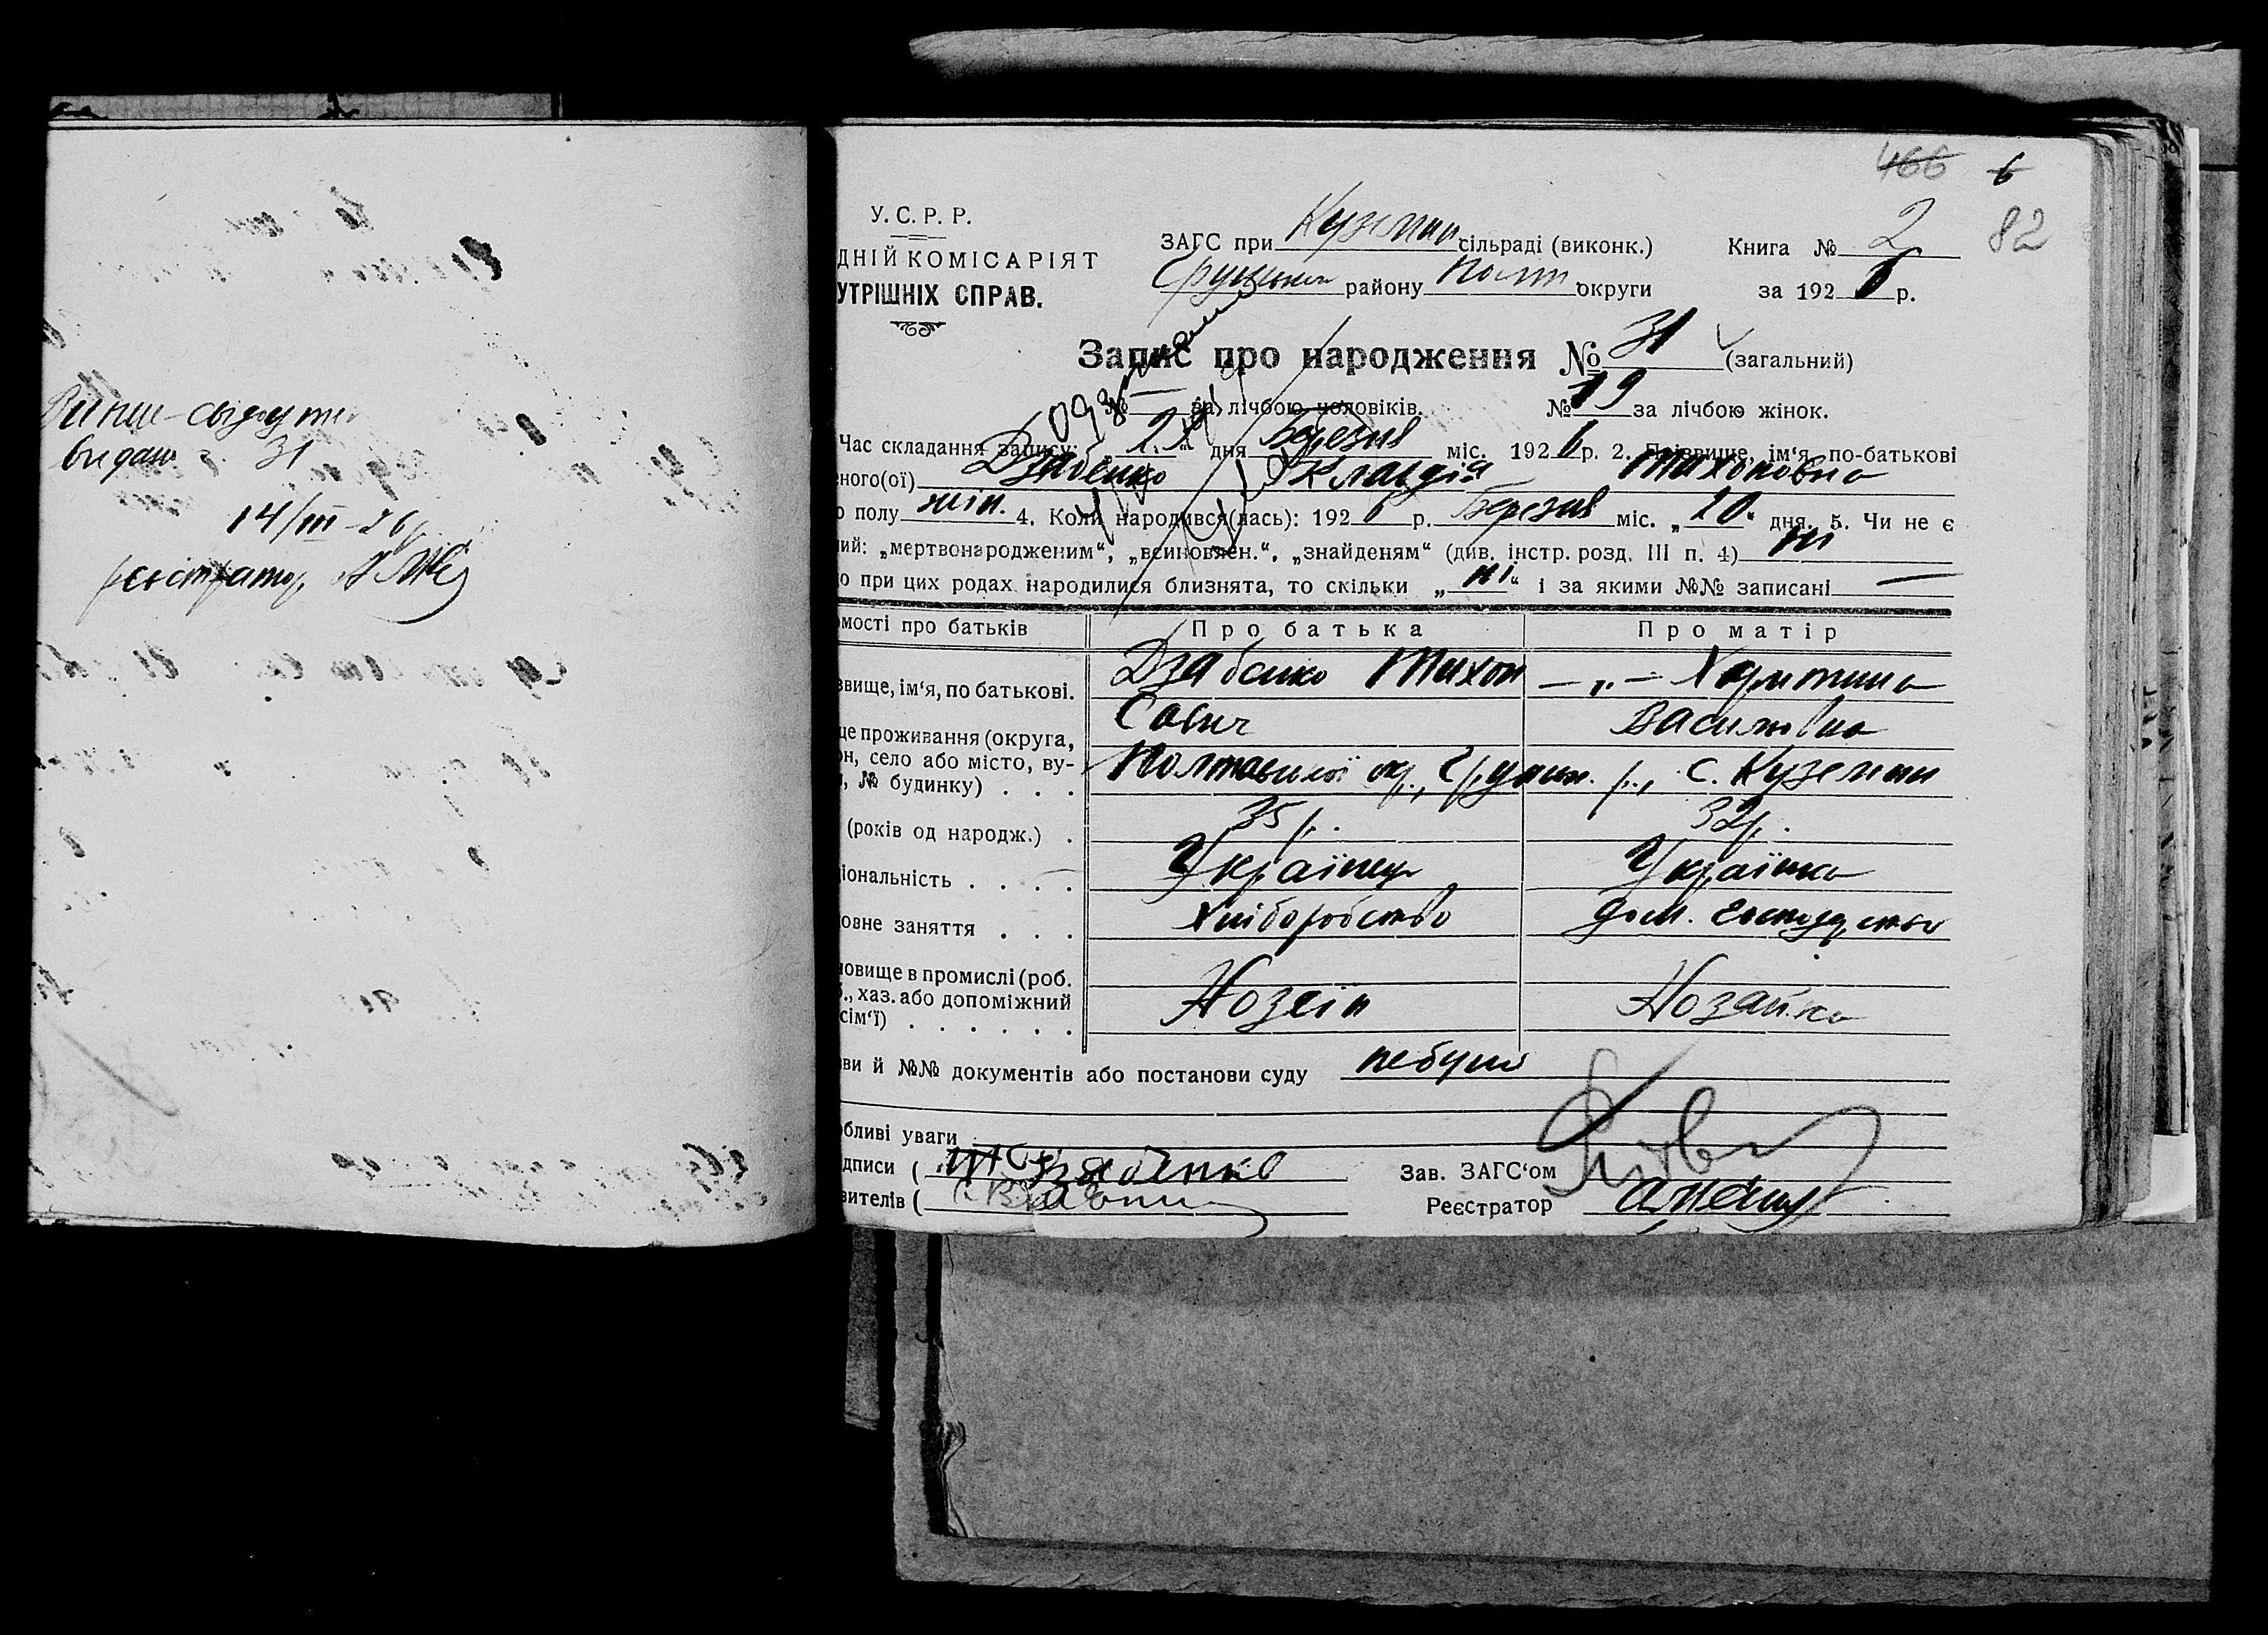 видано 31
14/III-26 р.
реєстратор
466 6
82
У. С. Р. Р.
ДНІЙ КОМІСАРІЯТ
УТРІШНІХ СПРАВ.
ЗАГС при Куземин сільраді (виконк.)
Грунськ району Полт. округи
Книга № 2
за 1926 р.
Запис про народження № 31 (загальний)
№ — за лічбою чоловіків. № 19 за лічбою жінок.
Час складання запису: дня Березня міс. 1926 р. 2. Прізвище, ім'я, по-батькові
ного(ої) Дзабенко Клавдія Тихоновна
о полу жін. 4. Коли народився(лась): 1926 р. Березня міс. „10“ дня. 5. Чи не є
ий: „мертвонародженим“, „всиновлен.“, „знайденям“ (див. інстр. розд. III п. 4) ні
о при цих родах народилися близнята, то скільки „ні“ і за якими №№ записані —
омості про батьків Про батька Про матір
звище, ім'я, по батькові. Дзабенко Тихон —„— Харитина
Савич Василівна
це проживання (округа,
он, село або місто, ву-
, № будинку) . . . Полтавської ок., Грунськ. р., с. Куземин
(років од народж.) . 35 р. 32 р.
іональність . . . . Українець Українка
овне заняття . . . Хліборобство дом. господарство
новище в промислі (роб.
б., хаз. або допоміжний
сім'ї) . . . . . . Хозяїн Хозяйка
ви й №№ документів або постанови суду небуло
обливі уваги
дписи ( Дзабенко
вителів (
Зав. ЗАГС'ом
Реєстратор